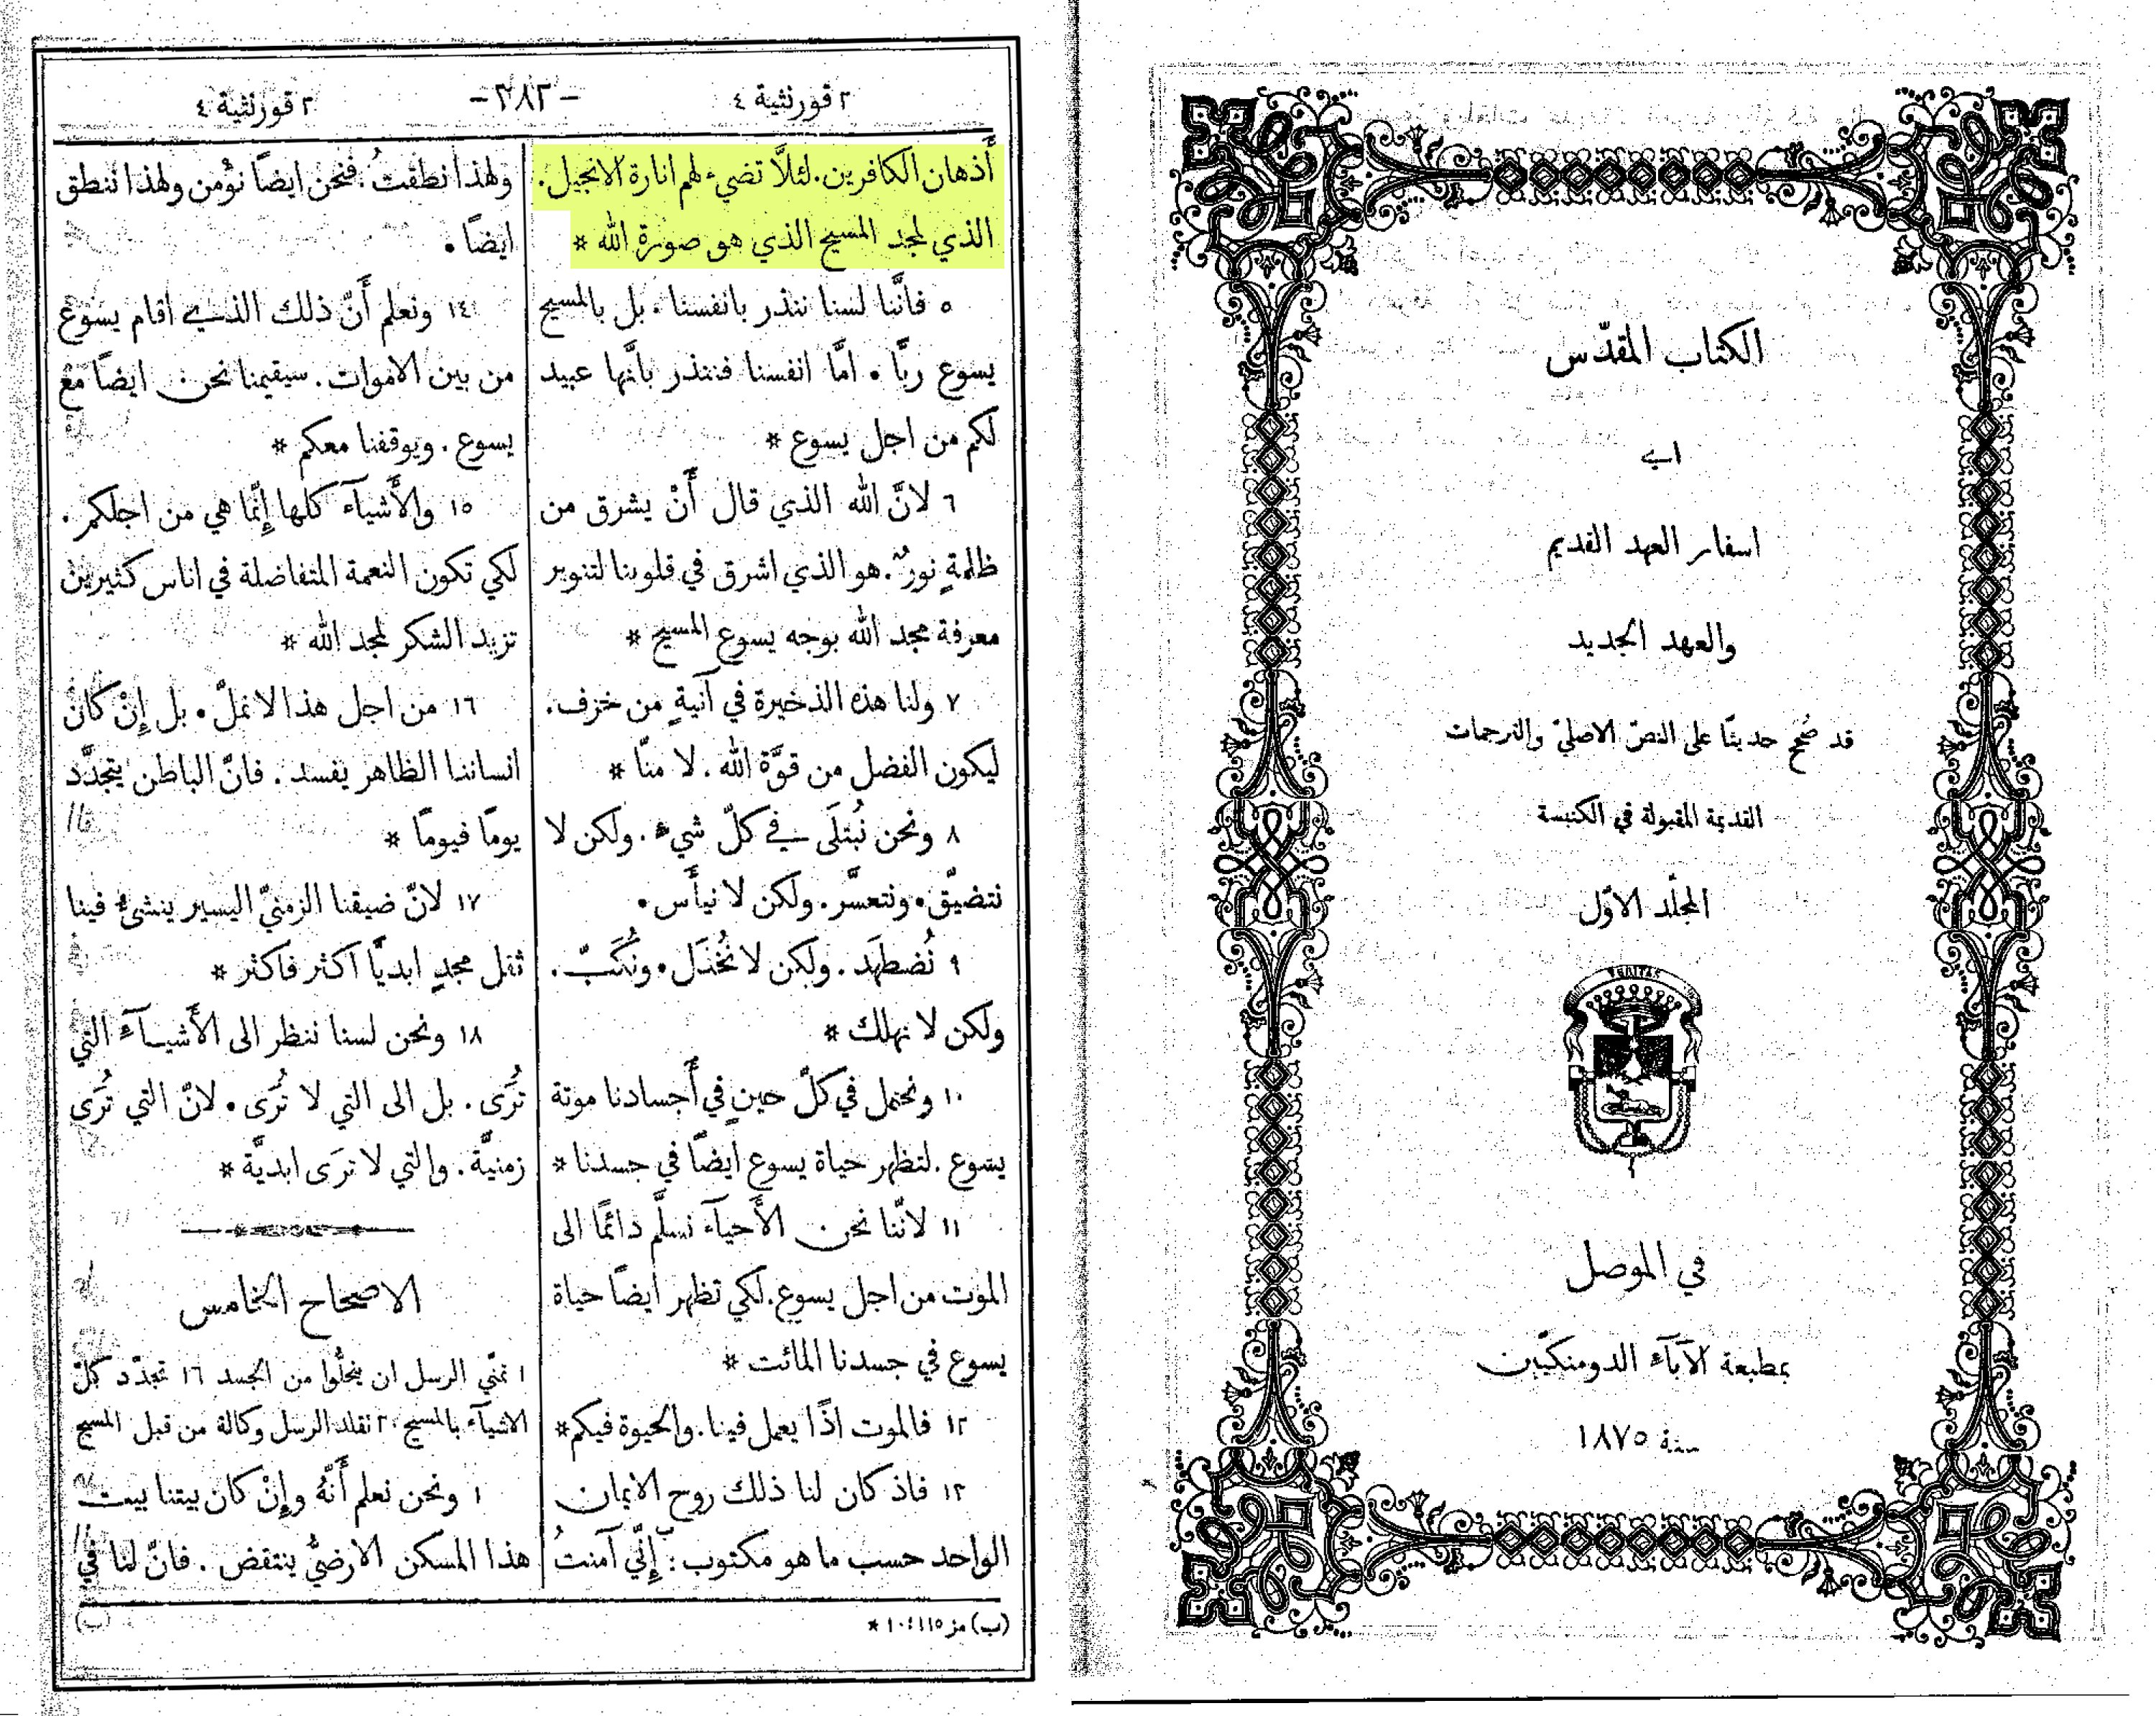 ٢ قورنثية ٤
-٢٨٢-
٢ قورنثية ٤
أَذهان الكافرين. لئلَّا تضيء لهم انارة الانجيل.
الذي لمجد المسيح الذي هو صورة الله *
٥ فانَّنا لسنا ننذر بانفسنا. بل بالمسيح
يسوع ربًّا. امَّا انفسنا فننذر بأنَّها عبيد
لكم من اجل يسوع *
٦ لانَّ الله الذي قال أَنْ يشرق من
ظلمةٍ نورٌ. هو الذي اشرق في قلوبنا لتنوير
معرفة مجد الله بوجه يسوع المسيح *
٧ ولنا هذه الذخيرة في آنيةٍ من خزف.
ليكون الفضل من قوَّة الله. لا منّا *
٨ ونحن نُبتلَى في كلّ شيء. ولكن لا
نتضيّق. ونتعسَّر. ولكن لا نيأَس.
٩ نُضطهَد. ولكن لا نُخذَل. ونُكَبّ.
ولكن لا نهلك *
١٠ ونحتمل في كلّ حينٍ في أَجسادنا موتة
يسوع. لتظهر حياة يسوع ايضًا في جسدنا *
١١ لانَّنا نحن الأَحيآء نسلَّم دائمًا الى
الموت من اجل يسوع. لكي تظهر ايضًا حياة
يسوع في جسدنا المائت *
١٢ فالموت اذًا يعمل فينا. والحيوة فيكم *
١٣ فاذ كان لنا ذلك روح الايمان
الواحد حسب ما هو مكتوب: إِنّي آمنتُ
ولهذا نطقتُ. فنحن ايضًا نؤمن ولهذا ننطق
ايضًا.
١٤ ونعلم أَنَّ ذلك الذي اقام يسوع
من بين الاموات. سيقيمنا نحن ايضًا مع
يسوع. ويوقفنا معكم *
١٥ والأَشيآء كلها إِنَّما هي من اجلكم.
لكي تكون النعمة المتفاضلة في اناس كثيرين
تزيد الشكر لمجد الله *
١٦ من اجل هذا لا نملّ. بل إِنْ كان
انساننا الظاهر يفسد. فانَّ الباطن يتجدَّد
يومًا فيومًا *
١٧ لانّ ضيقنا الزمنيّ اليسير ينشئ فينا
ثقل مجدٍ ابديًّا اكثر فاكثر *
١٨ ونحن لسنا ننظر الى الأَشيآء التي
تُرَى. بل الى التي لا تُرَى. لانّ التي تُرَى
زمنيَّة. والتي لا تُرَى ابديَّة *
الاصحاح الخامس
١ تمنّي الرسل ان ينحلّوا من الجسد ١٦ تجدّد كلّ
الاشيآء بالمسيح ٢٠ تقلد الرسل وكالة من قبل المسيح
١ ونحن نعلم أَنَّهُ وإِنْ كان بيتنا بيت
هذا المسكن الارضيُّ ينتقض. فانَّ لنا في
(ب) مز ١١٥: ١٠ *
(ب)
الكتاب المقدّس
اي
اسفار العهد القديم
والعهد الجديد
قد صُحّح حديثًا على النصّ الاصليّ والترجمات
القديمة المقبولة في الكنيسة
المجلّد الاوّل
VERITAS
في الموصل
بمطبعة الآبآء الدومنكيّين
سنة ١٨٧٥